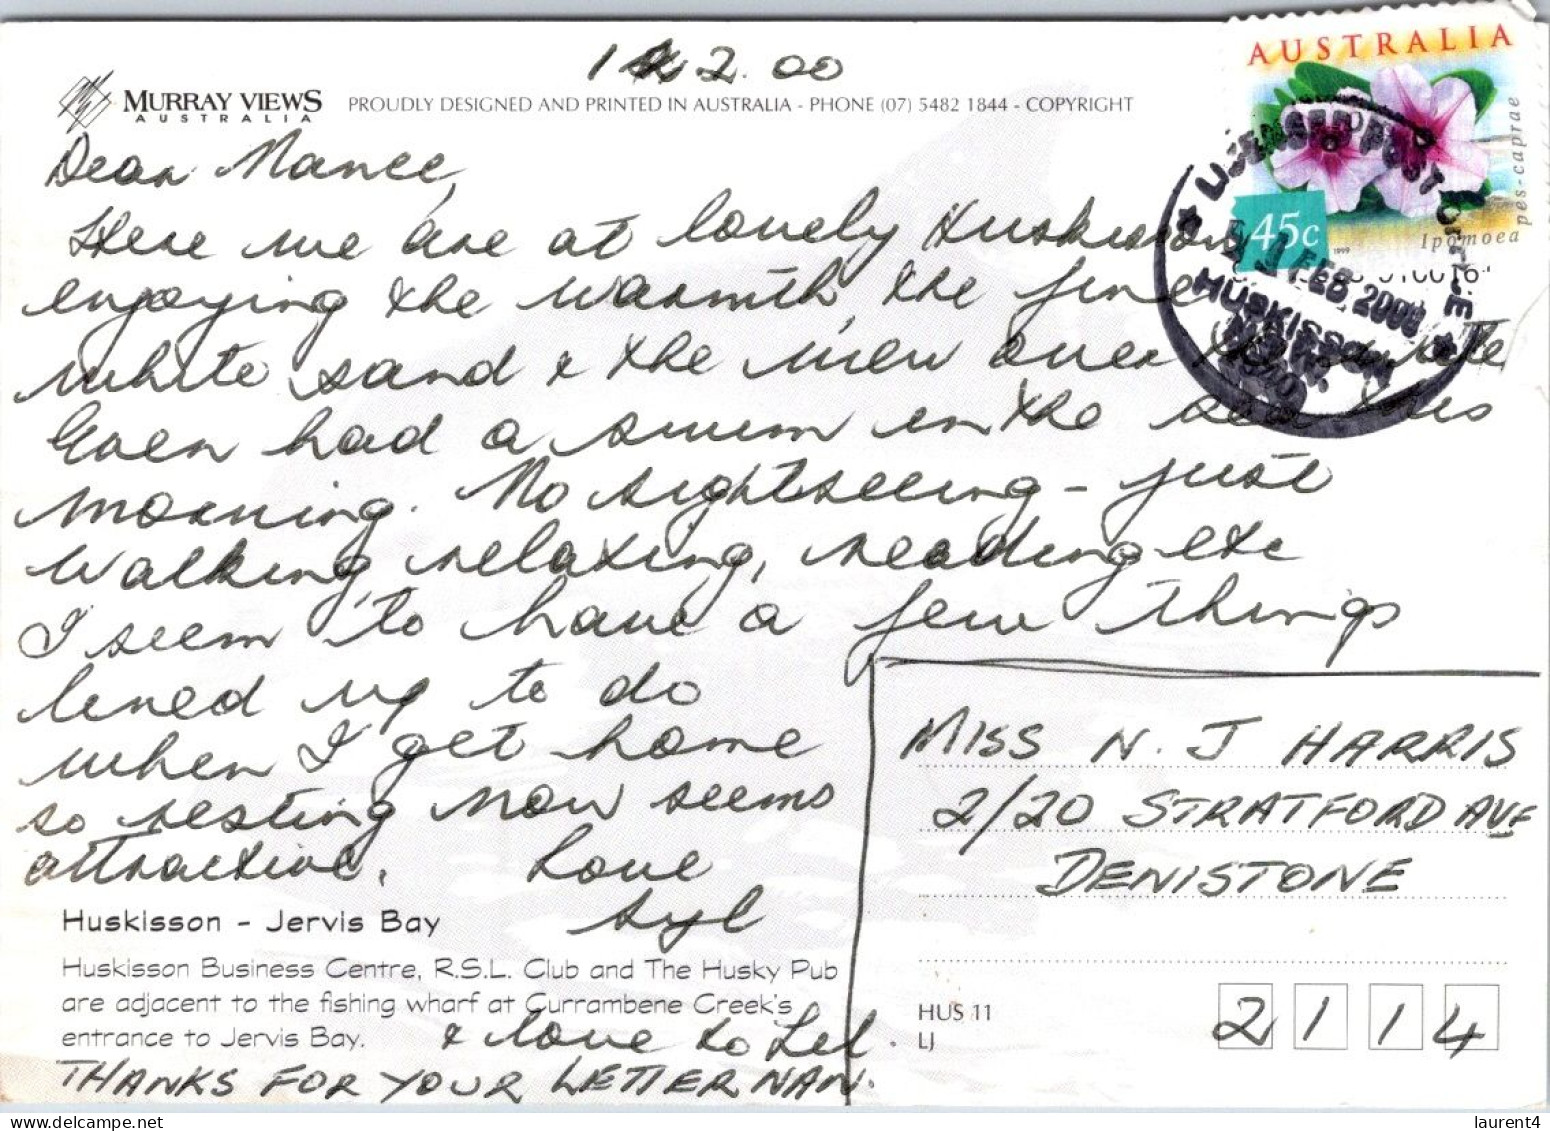 1 2. 00
AUSTRALIA
MURRAY VIEWS
AUSTRALIA
PROUDLY DESIGNED AND PRINTED IN AUSTRALIA - PHONE (07) 5482 1844 - COPYRIGHT
45c
1999
Ipomoea pes-caprae
LICENSED POST OFFICE
FEB 2000
HUSKISSON
Dear Nance,
Here we are at lovely Huskisson
enjoying the warmth, the fine
white sand & the view over the
Even had a swim in the sea this
morning. No sightseeing - just
walking, relaxing, reading etc
I seem to have a few things
lined up to do
when I get home
so resting now seems
attractive. Love
Syl
Huskisson - Jervis Bay
Huskisson Business Centre, R.S.L. Club and The Husky Pub
are adjacent to the fishing wharf at Currambene Creek's
entrance to Jervis Bay.
& love to Lel.
THANKS FOR YOUR LETTER NAN.
MISS N. J HARRIS
2/20 STRATFORD AVE
DENISTONE
HUS 11
LJ
2114
laurent4